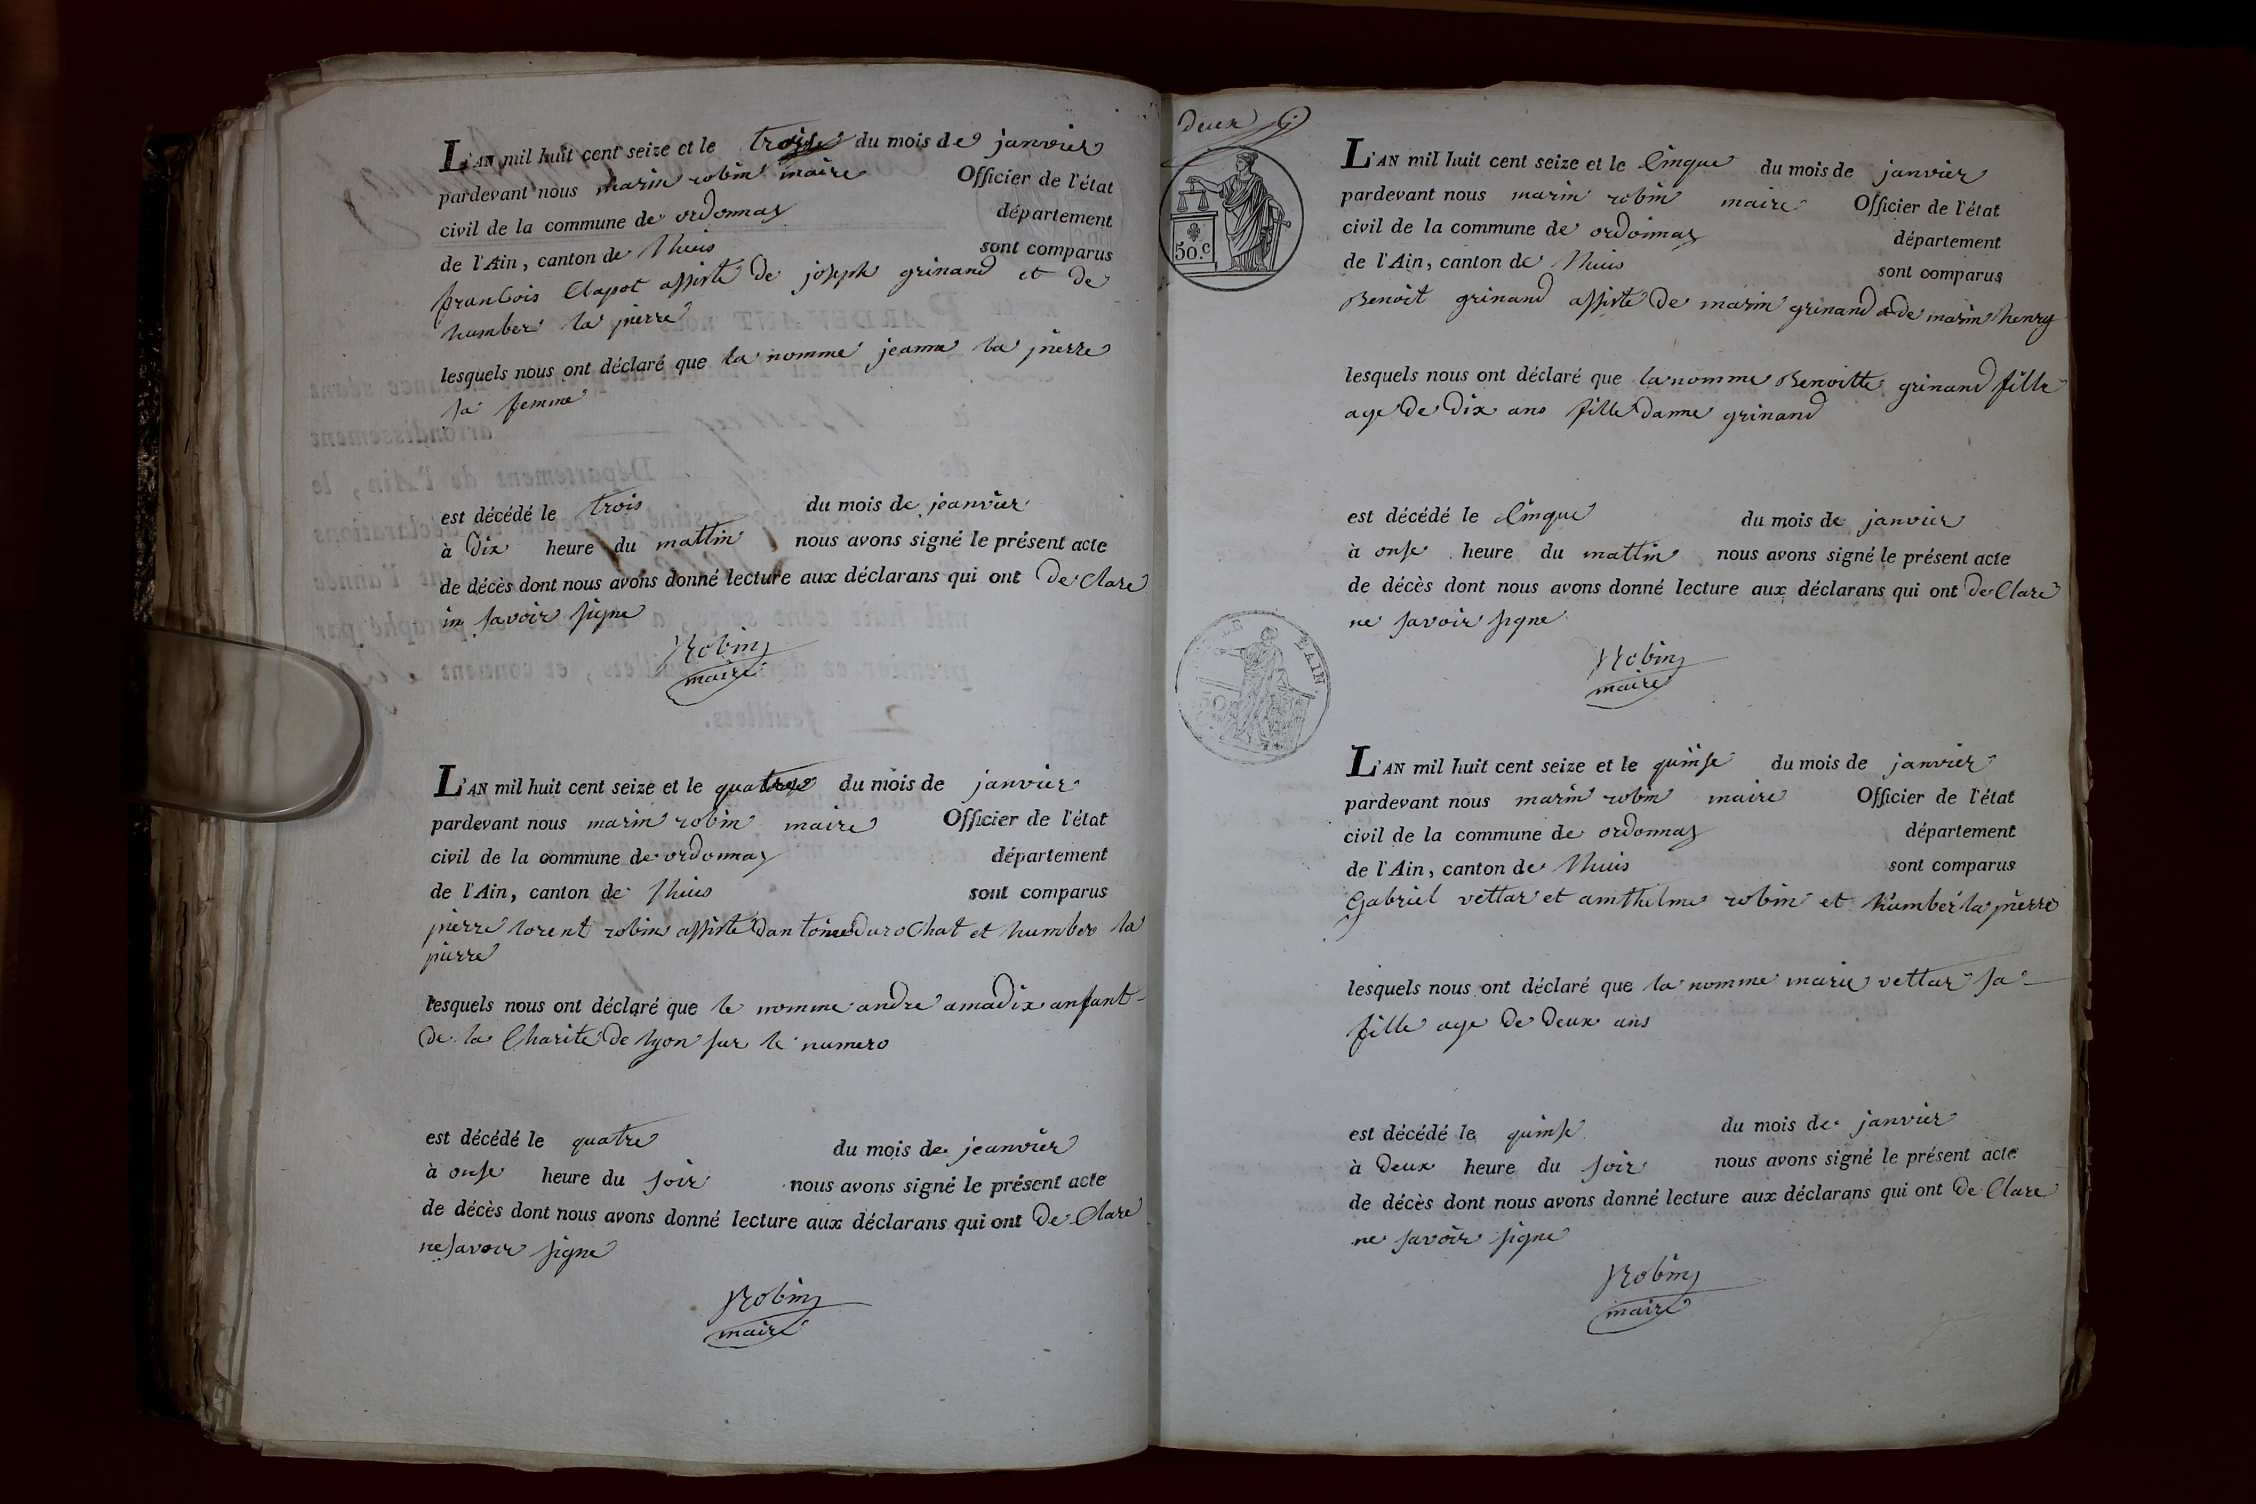 L'AN mil huit cent seize et le trois du mois de janvier
pardevant nous marin robin maire Officier de l'état
civil de la commune de ordonnas département
de l'Ain, canton de lhuis sont comparus
francois Clapot assisté de joseph grinand et de
humber la pierre
lesquels nous ont déclaré que la nomme jeanne la pierre
sa femme
est décédé le trois du mois de jeanvier
à dix heure du mattin nous avons signé le présent acte
de décès dont nous avons donné lecture aux déclarans qui ont de Clare
savoir signe
Robin
maire
L'AN mil huit cent seize et le quatre du mois de janvier
pardevant nous marin robin maire Officier de l'état
civil de la commune de ordonnas département
de l'Ain, canton de lhuis sont comparus
pierre lorent robin assisté dantoine durochat et humber la
pierre
lesquels nous ont déclaré que le nomme andre amadix anfant
de la Charité de lyon sur le numero
est décédé le quatre du mois de jeanvier
à onse heure du soir nous avons signé le présent acte
de décès dont nous avons donné lecture aux déclarans qui ont de Clare
ne savoir signe
Robin
maire
deux
50.c
L'AN mil huit cent seize et le Cinque du mois de janvier
pardevant nous marin robin maire Officier de l'état
civil de la commune de ordonnas département
de l'Ain, canton de lhuis sont comparus
Benoit grinand assisté de marin grinand de marin henry
lesquels nous ont déclaré que la nomme Benoitte grinand fille
age de dix ans fille danne grinand
est décédé le Cinque du mois de janvier
à onse heure du mattin nous avons signé le présent acte
de décès dont nous avons donné lecture aux déclarans qui ont de Clare
ne savoir signe
Robin
maire
L'AN mil huit cent seize et le quinse du mois de janvier
pardevant nous marin robin maire Officier de l'état
civil de la commune de ordonnas département
de l'Ain, canton de lhuis sont comparus
Gabriel vettar et amthelme robin et humber la pierre
lesquels nous ont déclaré que la nomme marie vettar sa
fille age de deux ans
est décédé le quinse du mois de janvier
à deux heure du soir nous avons signé le présent acte
de décès dont nous avons donné lecture aux déclarans qui ont de Clare
ne savoir signe
Robin
maire